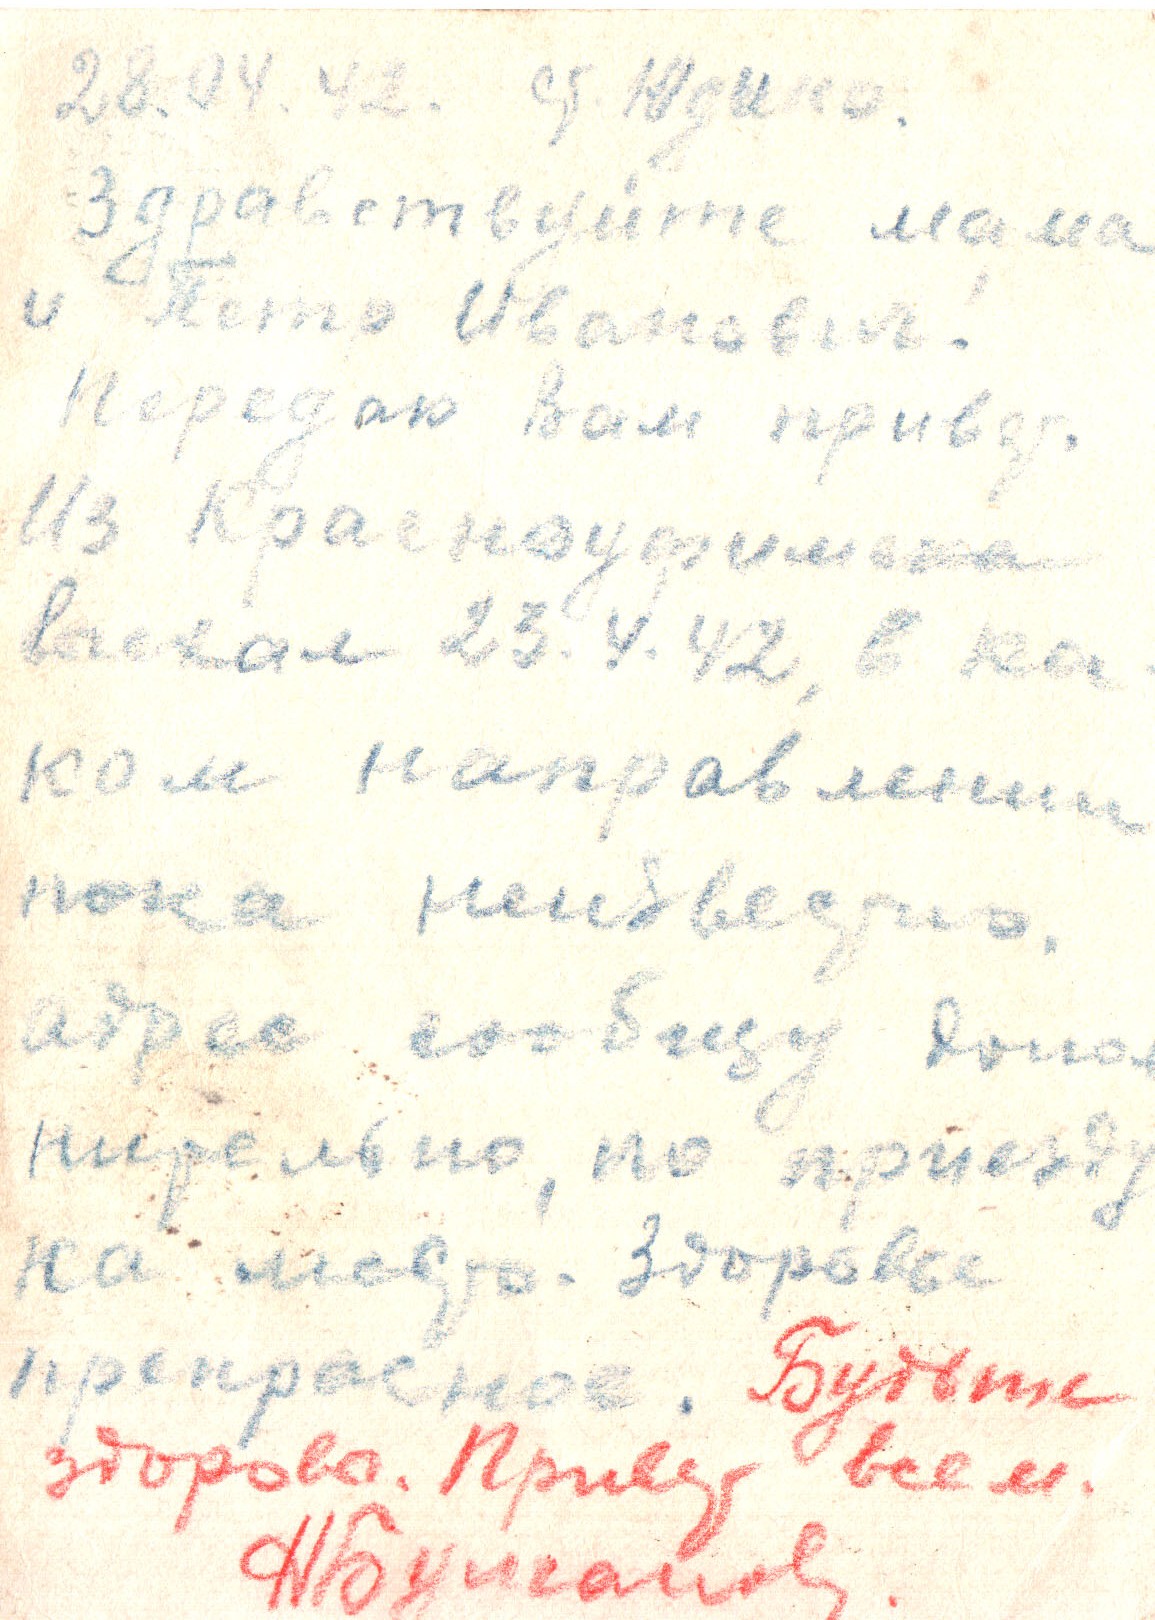 28.04.42. ст. Юдино.
Здравствуйте мама
и Петр Иванович!
Передаю Вам привет.
Из Красноуфимска
выехал 23.4.42, в ка-
ком направлении
пока неизвестно.
адрес сообщу допол
нительно, по приезду
на место. Здоровье
прекрасное. Будьте
здорово. Привет всем.